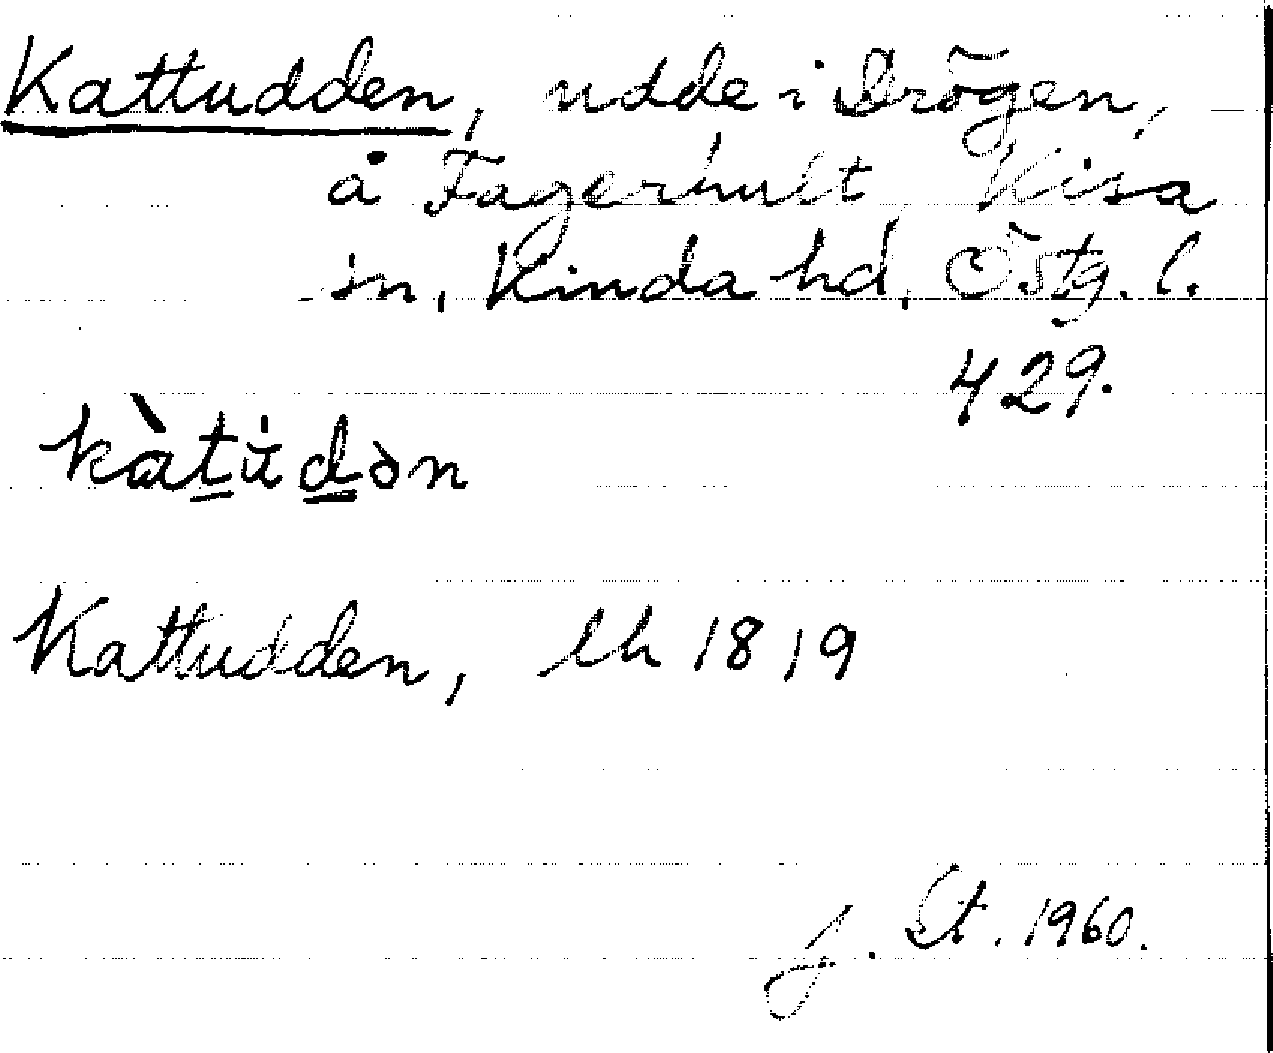 Kattudden, udde i Drögen,
å Fagerhult, Kisa
sn, Kinda hd, Östg. l.
429.
kàtu̇dən
Kattudden, lh 1819
J. St. 1960.